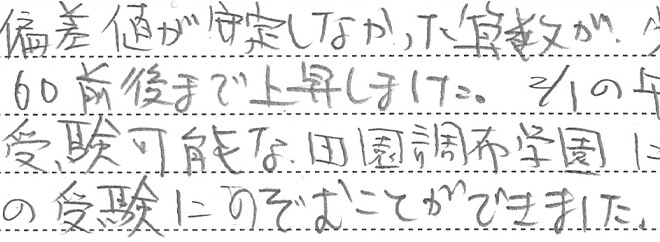 偏差値が安定しなかった算数が、
60前後まで上昇しました。2/1の午
受験可能な田園調布学園に
の受験にのぞむことができました。